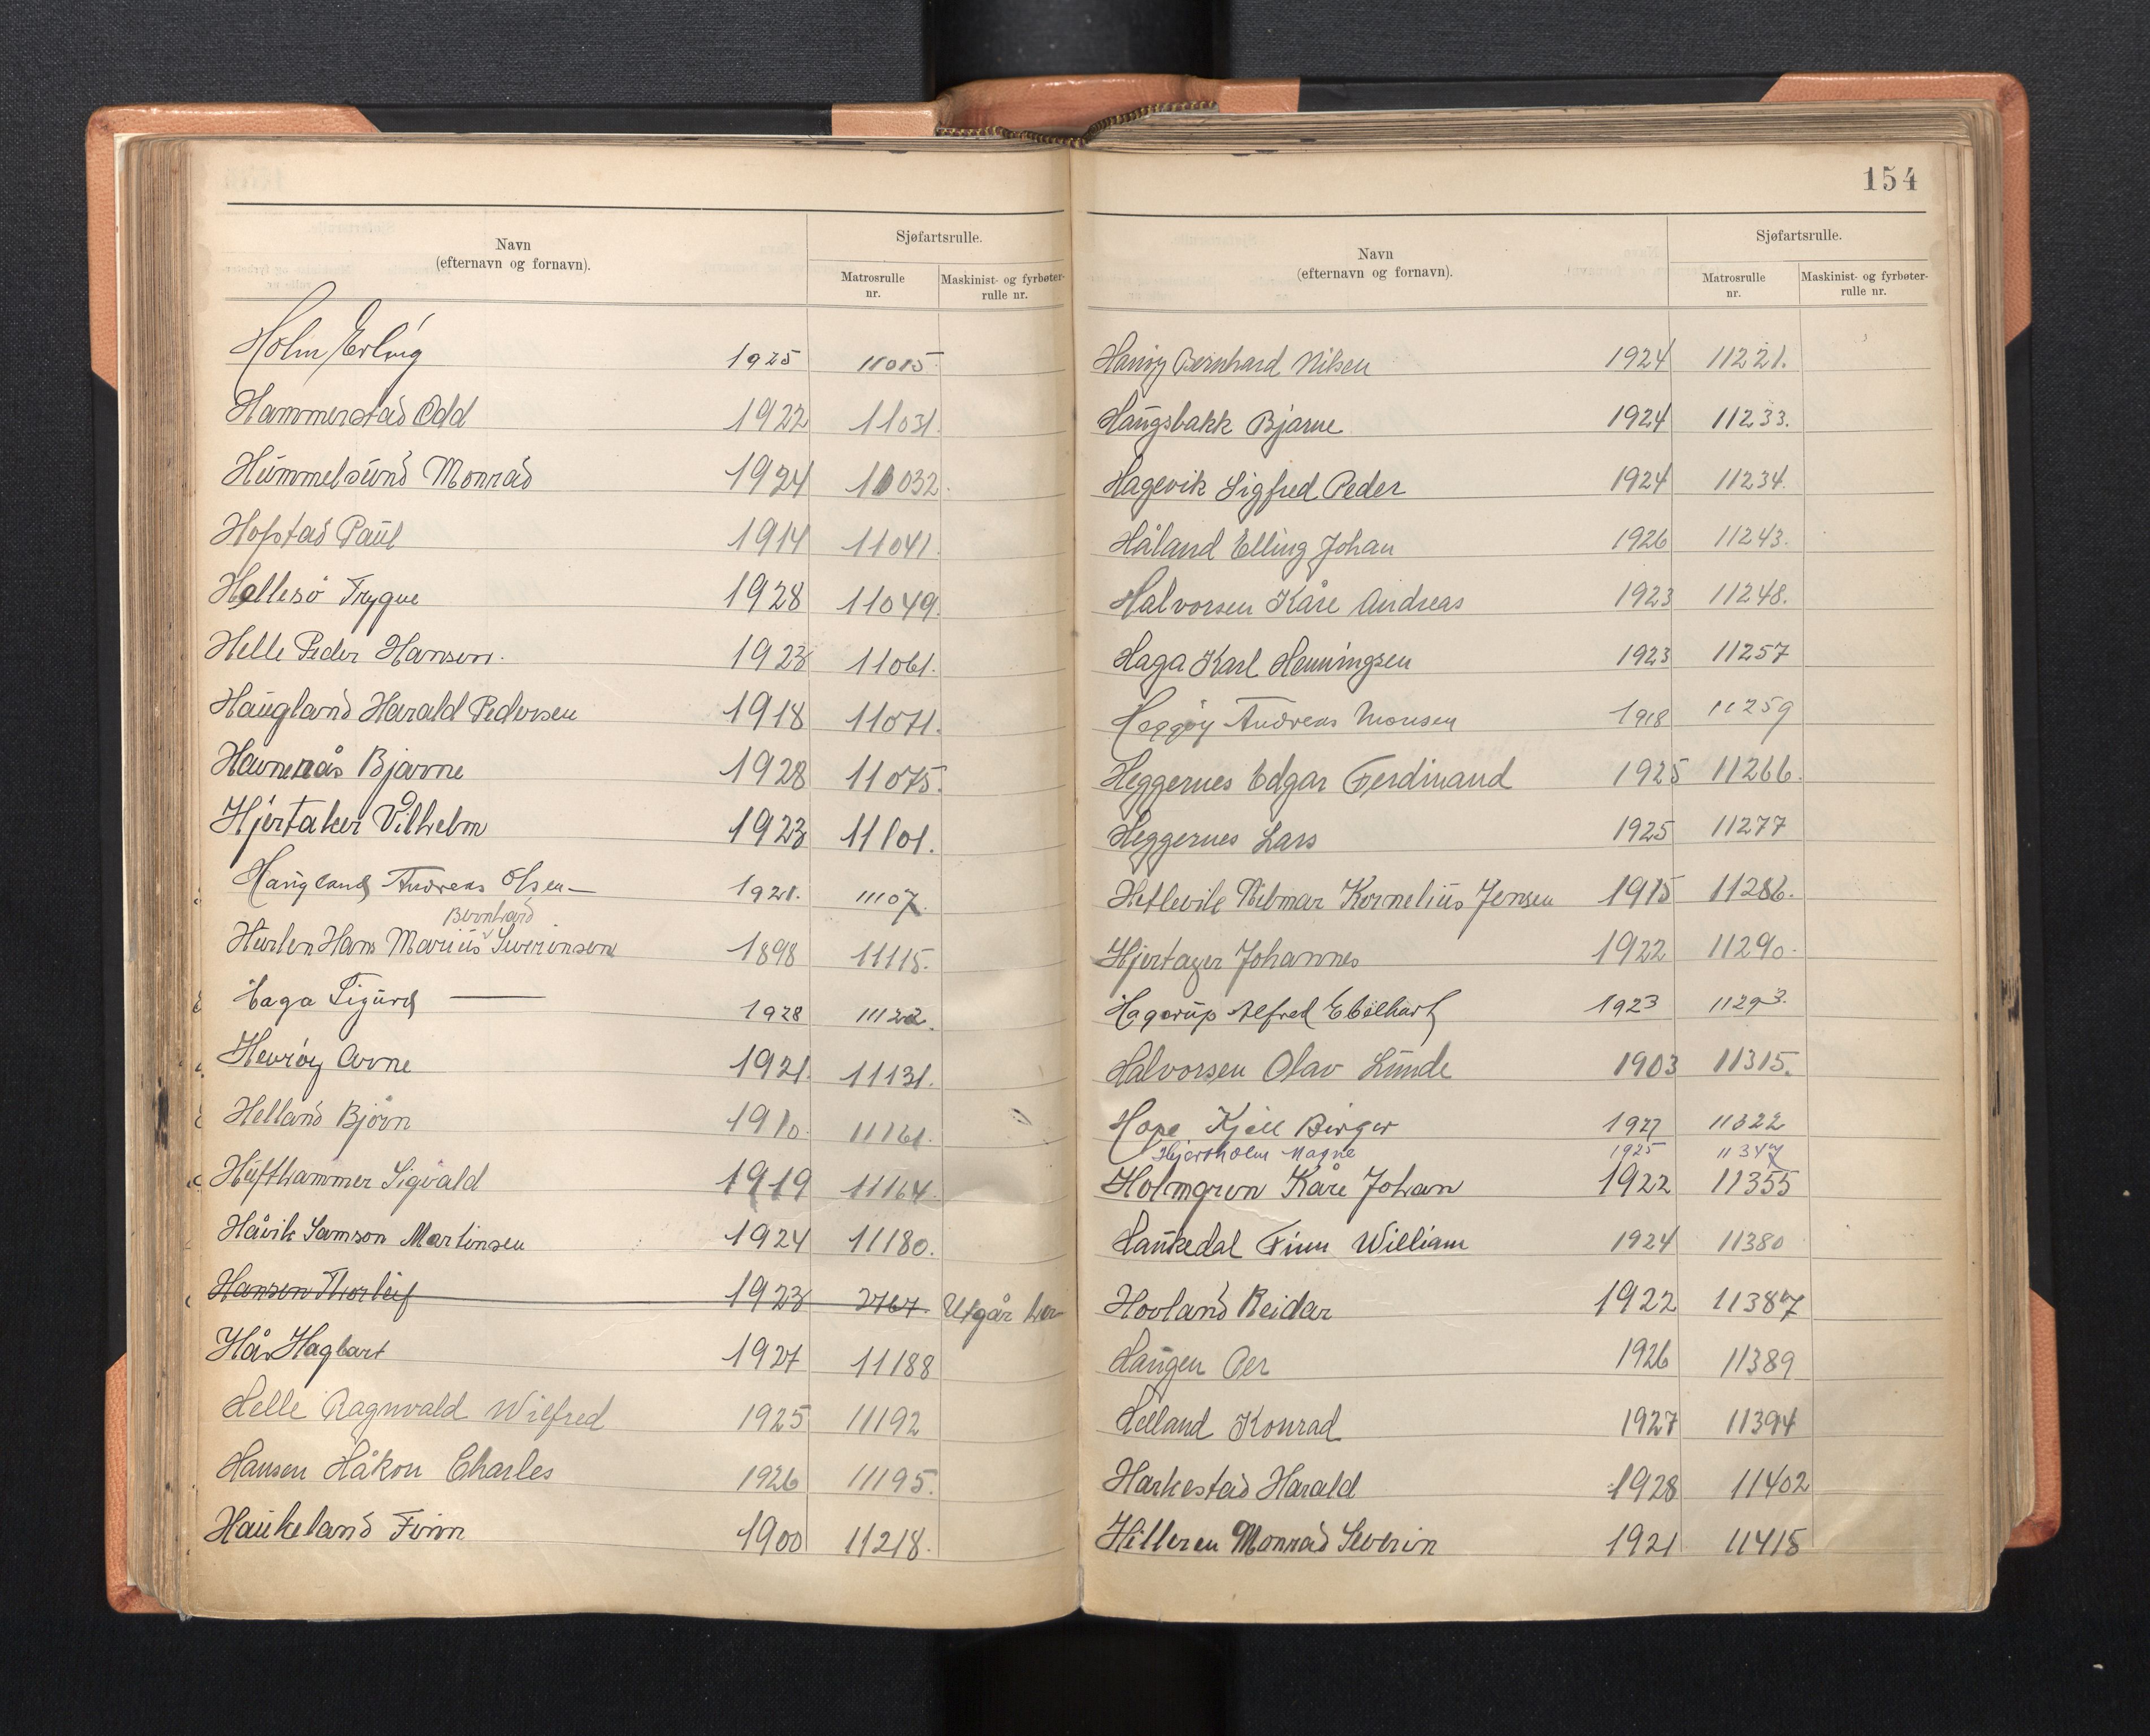 Navn
(efternavn og fornavn).
Sjøfartsrulle.
Matrosrulle
nr.
Maskinist- og fyrbøter-
rulle nr.
Holm Erling 1925 11015
Hammerstad Odd 1922 11031.
Hummelsund Monrad 1924 11032.
Hofstad Paul 1914 11041.
Hellesö Trygve 1928 11049.
Helle Peder Hansen. 1923 11061.
Haugland Harald Pedersen 1918 11071.
Havnerås Bjarne 1928 11075.
Hjertaker Vilhelm 1923 11101.
Haugland Andreas Olsen — 1921. 11107.
Bernhard
Hurlen Hans Marius Severinsen 1898 11115.
Haga Sigurd — 1928 11122.
Hevröy Arne 1921. 11131.
Helland Björn 1910. 11161.
Hufthammer Sigvald 1919 11164.
Håvik Samson Martinsen 1924 11180.
Hansen Thorleif 1923 2767 Utgår her
Hår Hagbart 1927 11188
Helle Ragnvald Wilfred 1925 11192
Hansen Håkon Charles 1926 11195.
Haukeland Finn 1900 11218.
154
Navn
(efternavn og fornavn).
Sjøfartsrulle.
Matrosrulle
nr.
Maskinist- og fyrbøter-
rulle nr.
Hanöy Bernhard Nilsen 1924 11221.
Haugsbakk Bjarne 1924 11233.
Hagevik Sigfred Peder 1924 11234.
Håland Elling Johan 1926 11243.
Halvorsen Kåre Andreas 1923 11248.
Haga Karl Henningsen 1923 11257
Heggöy Andreas Monsen 1918 11259
Heggernes Edgar Ferdinand 1925 11266.
Heggernes Lars 1925 11277
Hetlevik Hilmar Kornelius Jensen 1915 11286.
Hjertager Johannes 1922 11290.
Hagerup Alfred 1923 11293.
Halvorsen Olav Lunde 1903 11315.
Hope Kjell Birger 1927 11322
Hjersholm Magne 1925 11347
Holmgren Kåre Johan 1922 11355
Haukedal Finn William 1924 11380
Hovland Reidar 1922 11387
Haugen Per 1926 11389
Helland Konrad 1927 11394
Harkestad Harald 1928 11402
Hilleren Monrad Severin 1921 11415